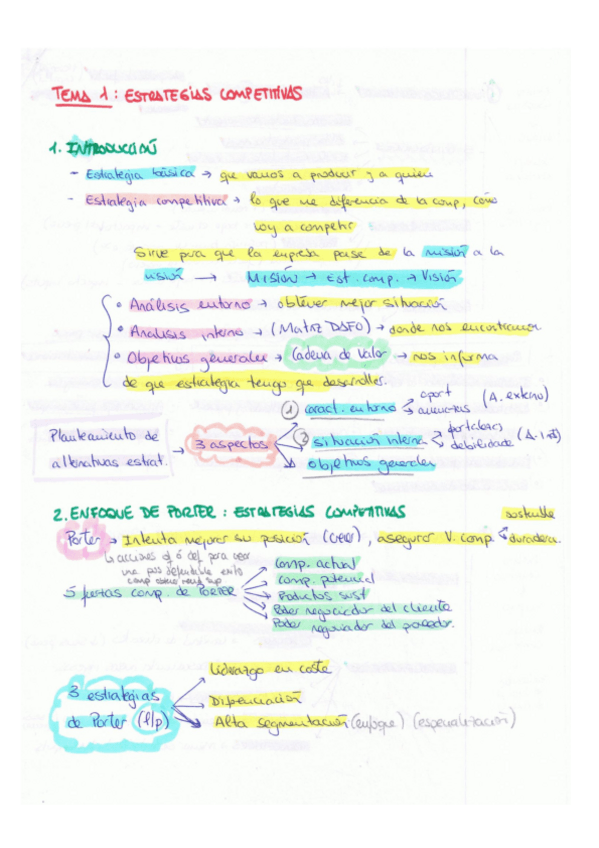 TEMA 1: ESTRATEGIAS COMPETITIVAS
1. INTRODUCCIÓN
- Estrategia básica → que vamos a producir y a quien
- Estrategia competitiva → lo que me diferencia de la comp, cómo
voy a competir
Sirve para que la empresa pase de la misión a la
visión → MISIÓN → Est. comp. → Visión
• Análisis entorno → obtener mejor situación
• Analisis interno → (Matriz DAFO) → donde nos encontramos
• Objetivos generales → Cadena de Valor → nos informa
de que estrategia tengo que desarrollar.
Planteamiento de
alternativas estrat. → 3 aspectos
① caract. entorno oport amenazas (A. externo)
② situación interna fortalezas debilidades (A. int)
objetivos generales
2. ENFOQUE DE PORTER: ESTRATEGIAS COMPETITIVAS
Porter → Intenta mejorar su posición (crear), asegurar V. comp. sostenible duradera.
↳ acciones of ó def para crear
una pos defendible
5 fuerzas comp. de PORTER
Comp. actual
Comp. potencial
Productos sust
Poder negociador del cliente
Poder negociador del proveedor.
3 estrategias
de Porter (l/p)
Liderazgo en coste
Diferenciación
Alta segmentación (enfoque) (especialización)